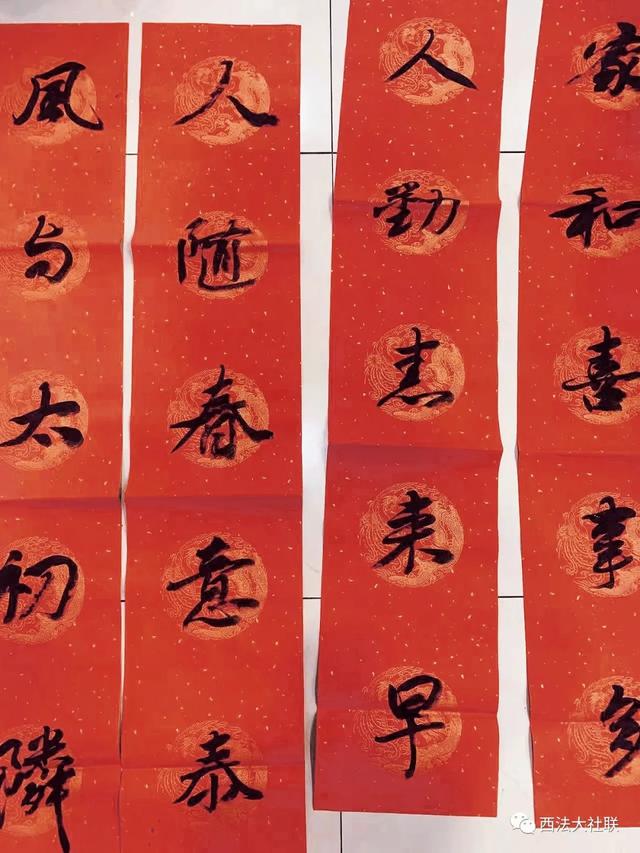 家和喜事多
人勤来早
人随春意泰
風与太初隣
西法大社联